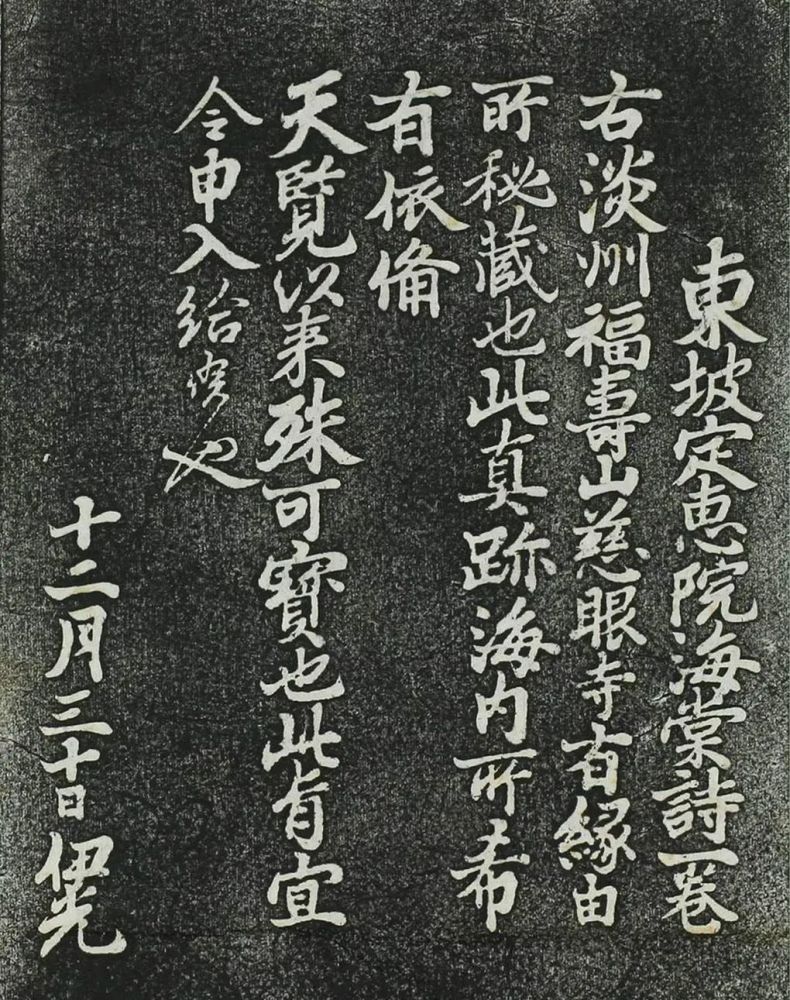 東坡定恵院海棠詩一巻
右淡州福壽山慈眼寺有縁由
所秘蔵也此真跡海内所希
有依備
天覧以来殊可寳也此旨宜
令申入給候也
十二月三十日 伊光